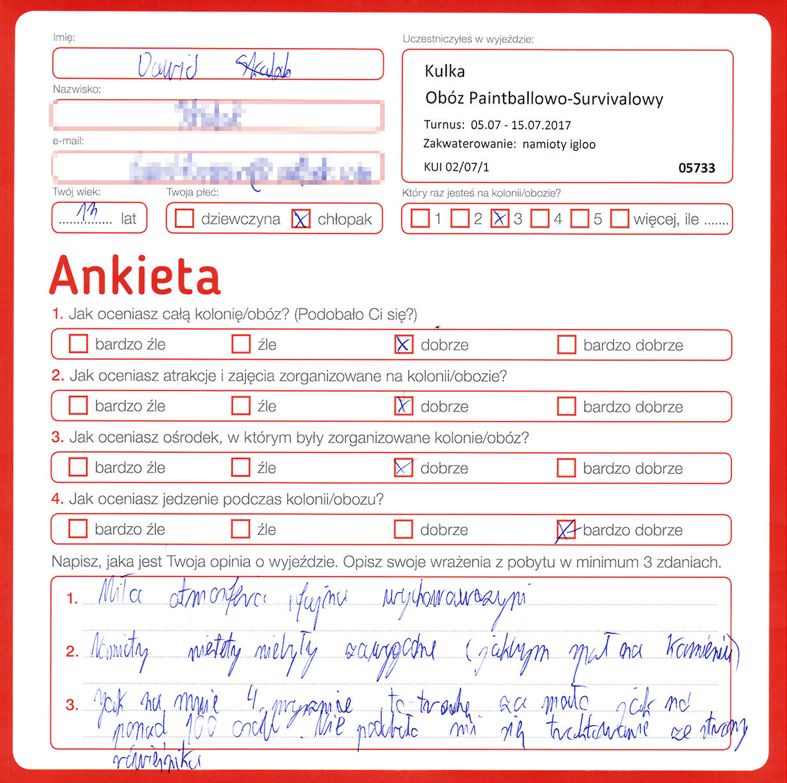 Imię:
Dawid
Uczestniczyłeś w wyjeździe:
Kulka
Obóz Paintballowo-Survivalowy
Turnus: 05.07 - 15.07.2017
Zakwaterowanie: namioty igloo
KUI 02/07/1 05733
Nazwisko:
e-mail:
Twój wiek: Twoja płeć: Który raz jesteś na kolonii/obozie?
13 lat dziewczyna chłopak 1 2 3 4 5 więcej, ile .......
Ankieta
1. Jak oceniasz całą kolonię/obóz? (Podobało Ci się?)
bardzo źle źle dobrze bardzo dobrze
2. Jak oceniasz atrakcje i zajęcia zorganizowane na kolonii/obozie?
bardzo źle źle dobrze bardzo dobrze
3. Jak oceniasz ośrodek, w którym były zorganizowane kolonie/obóz?
bardzo źle źle dobrze bardzo dobrze
4. Jak oceniasz jedzenie podczas kolonii/obozu?
bardzo źle źle dobrze bardzo dobrze
Napisz, jaka jest Twoja opinia o wyjeździe. Opisz swoje wrażenia z pobytu w minimum 3 zdaniach.
1. Miła atmosfera i fajni
2. Namioty niestety niebyły zawygodne (jakbym spał na kamieniu)
3. Jak na mnie 4 prysznice to trochę za mało jak na
ponad 100 osób. Nie podobało mi się traktowanie ze strony
rówieśnika